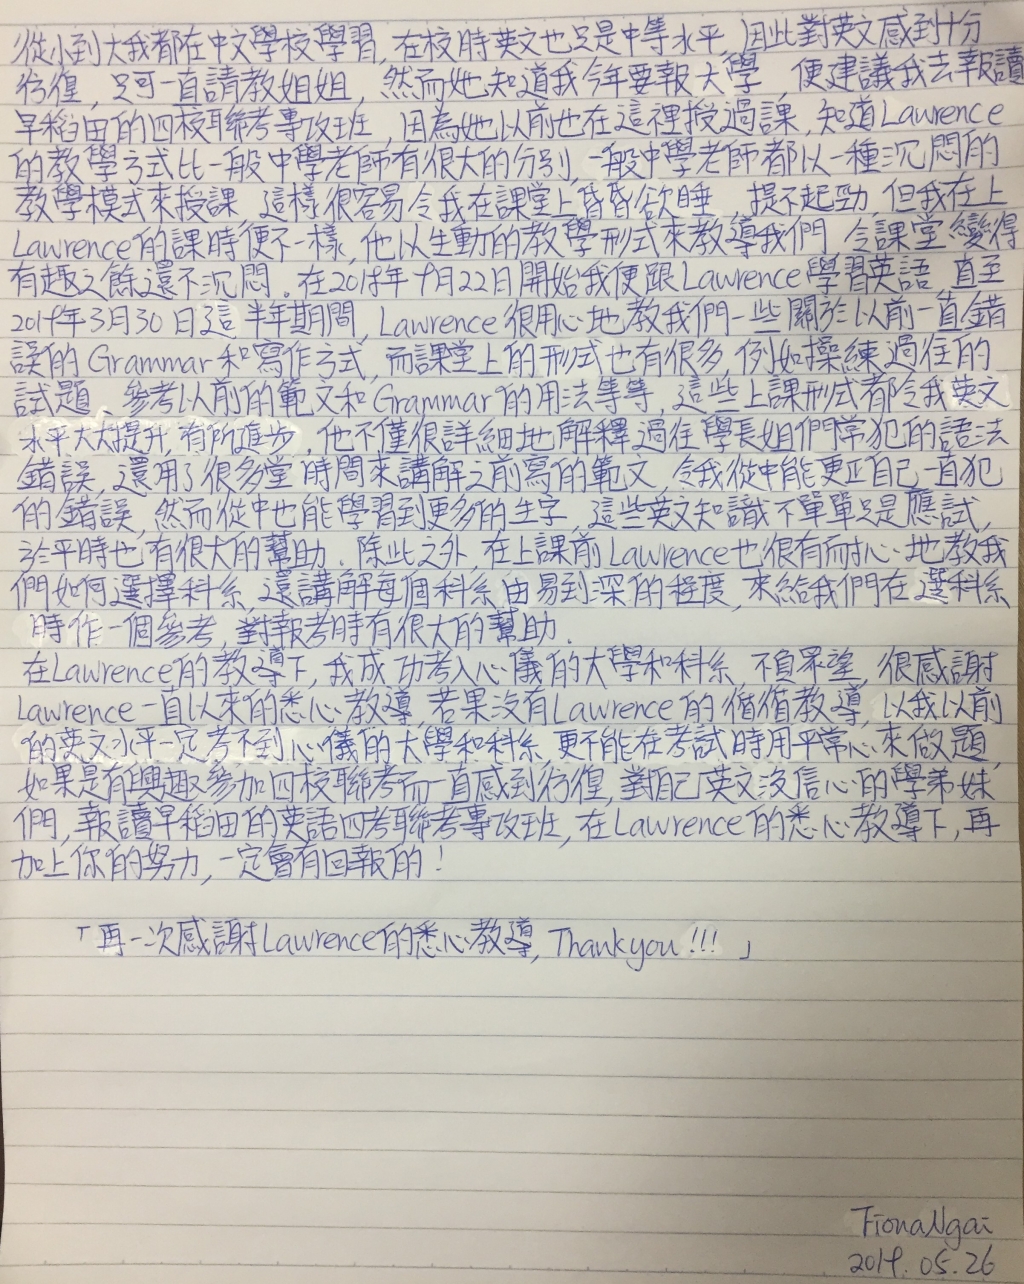 從小到大我都在中文學校學習,在校時英文也只是中等水平,因此對英文感到十分
彷徨,只可一直請教姐姐,然而她知道我今年要報大學,便建議我去報讀
早稻田的四校聯考專攻班,因為她以前也在這裡授過課,知道Lawrence
的教學方式比一般中學老師有很大的分別,一般中學老師都以一種沉悶的
教學模式來授課,這樣很容易令我在課堂上昏昏欲睡,提不起勁,但我在上
Lawrence的課時便不一樣,他以生動的教學形式來教導我們,令課堂變得
有趣之餘還不沉悶。在2018年9月22日開始我便跟Lawrence學習英語,直至
2019年3月30日這半年期間,Lawrence很用心地教我們一些關於以前一直錯
誤的Grammar和寫作方式,而課堂上的形式也有很多,例如操練過往的
試題、參考以前的範文和Grammar的用法等等,這些上課形式都令我英文
水平大大提升,有所進步。他不僅很詳細地解釋過往學長姐們常犯的語法
錯誤,還用了很多堂時間來講解之前寫的範文,令我從中能更正自己一直犯
的錯誤,然而從中也能學習到更多的生字,這些英文知識不單單只是應試,
於平時也有很大的幫助。除此之外,在上課前Lawrence也很有耐心地教我
們如何選擇科系,還講解每個科系由易到深的程度,來給我們在選科系
時作一個參考,對報考時有很大的幫助。
在Lawrence的教導下,我成功考入心儀的大學和科系,不負眾望,很感謝
Lawrence一直以來的悉心教導,若果沒有Lawrence的循循教導,以我以前
的英文水平一定考不到心儀的大學和科系,更不能在考試時用平常心來做題,
如果是有興趣參加四校聯考而一直感到彷徨,對自己英文沒信心的學弟妹
們,報讀早稻田的英語四考聯考專攻班,在Lawrence的悉心教導下,再
加上你的努力,一定會有回報的!
「再一次感謝Lawrence的悉心教導,Thankyou!!!」
FionaNgai
2019.05.26